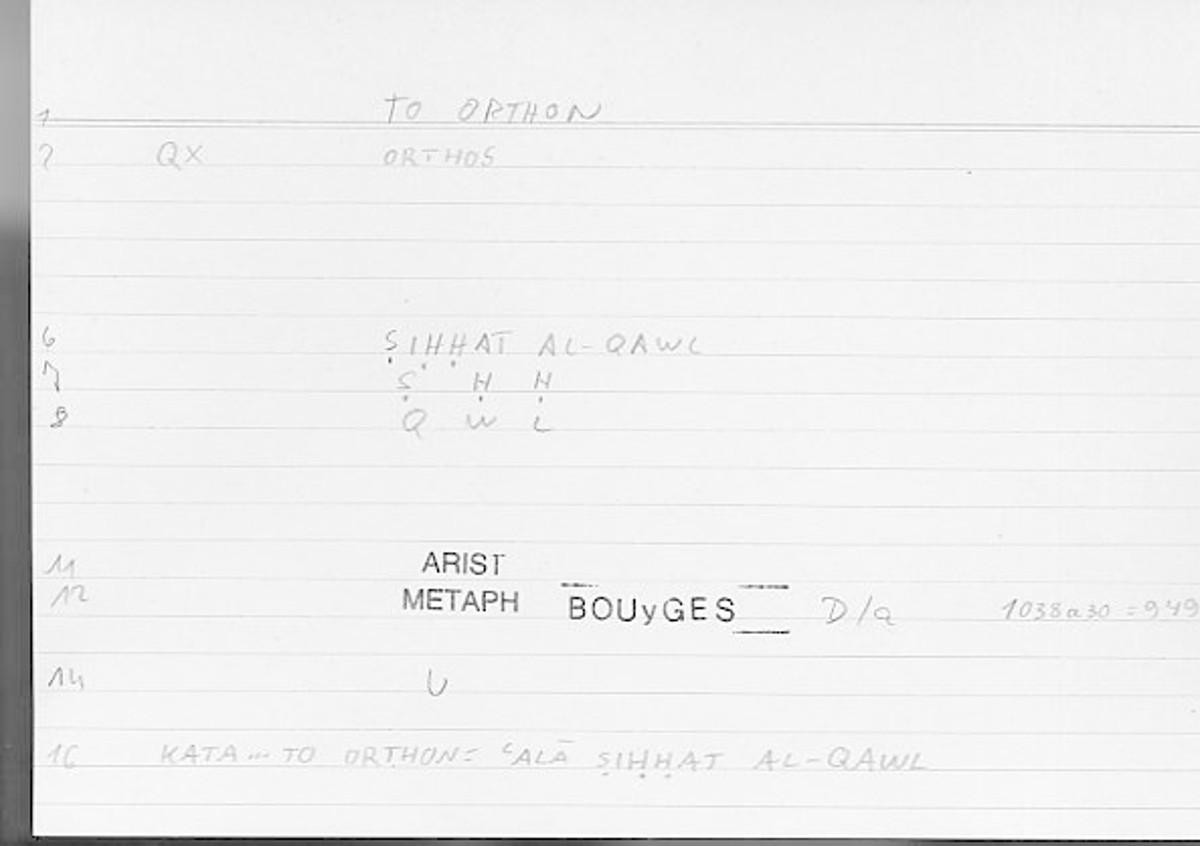 1 TO ORTHON
2 QX ORTHOS
6 ṢIḤḤAT AL-QAWL
7 Ṣ Ḥ Ḥ
8 Q W L
11 ARIST
12 METAPH BOUyGES D/a 1038a30 = 949
14 U
16 KATA ... TO ORTHON = ʿALĀ ṢIḤḤAT AL-QAWL